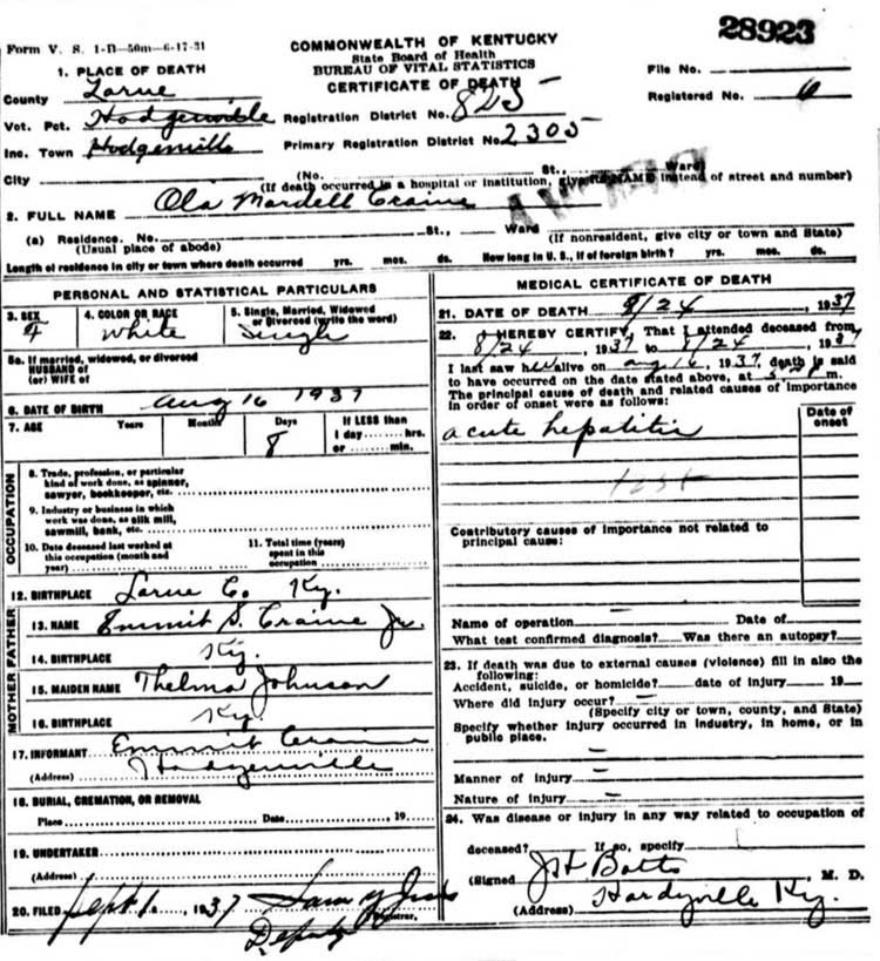 28923
Form V. S. 1-D—50m—6-17-31
COMMONWEALTH OF KENTUCKY
State Board of Health
BUREAU OF VITAL STATISTICS
CERTIFICATE OF DEATH
File No.
Registered No. 6
1. PLACE OF DEATH
County Larue
Vot. Pct. Hodgenville Registration District No. 825
Inc. Town Hodgenville Primary Registration District No. 2305
City (No. St., Ward)
(If death occurred in a hospital or institution, give its NAME instead of street and number)
2. FULL NAME Ola Mardell Craine
(a) Residence. No. St., Ward (If nonresident, give city or town and State)
(Usual place of abode)
Length of residence in city or town where death occurred yrs. mos. ds. How long in U. S., if of foreign birth? yrs. mos. ds.
PERSONAL AND STATISTICAL PARTICULARS
3. SEX F
4. COLOR OR RACE white
5. Single, Married, Widowed or Divorced (write the word) Single
5a. If married, widowed, or divorced
HUSBAND of
(or) WIFE of
6. DATE OF BIRTH Aug 16 1937
7. AGE Years Months Days 8 If LESS than 1 day ........ hrs. or ........ min.
OCCUPATION
8. Trade, profession, or particular
kind of work done, as spinner,
sawyer, bookkeeper, etc.
9. Industry or business in which
work was done, as silk mill,
sawmill, bank, etc.
10. Date deceased last worked at
this occupation (month and
year)
11. Total time (years)
spent in this
occupation
12. BIRTHPLACE Larue Co. Ky.
FATHER
13. NAME Emmit S. Craine Jr.
14. BIRTHPLACE Ky.
MOTHER
15. MAIDEN NAME Thelma Johnson
16. BIRTHPLACE Ky.
17. INFORMANT Emmit Craine
(Address) Hodgenville
18. BURIAL, CREMATION, OR REMOVAL
Place Date , 19
19. UNDERTAKER
(Address)
20. FILED Sept 1 , 1937
Registrar.
Deputy
MEDICAL CERTIFICATE OF DEATH
21. DATE OF DEATH 8/24 , 1937
22. I HEREBY CERTIFY, That I attended deceased from
8/24 , 1937 to 8/24 , 1937
I last saw her alive on Aug 16 , 1937, death is said
to have occurred on the date stated above, at m.
The principal cause of death and related causes of importance
in order of onset were as follows:
Date of onset
acute hepatitis
Contributory causes of importance not related to
principal cause:
Name of operation — Date of
What test confirmed diagnosis? Was there an autopsy?
23. If death was due to external causes (violence) fill in also the
following:
Accident, suicide, or homicide? — date of injury 19
Where did injury occur? —
(Specify city or town, county, and State)
Specify whether injury occurred in industry, in home, or in
public place.
—
Manner of injury —
Nature of injury —
24. Was disease or injury in any way related to occupation of
deceased? If so, specify
(Signed Botts , M. D.
(Address) Hardyville Ky.